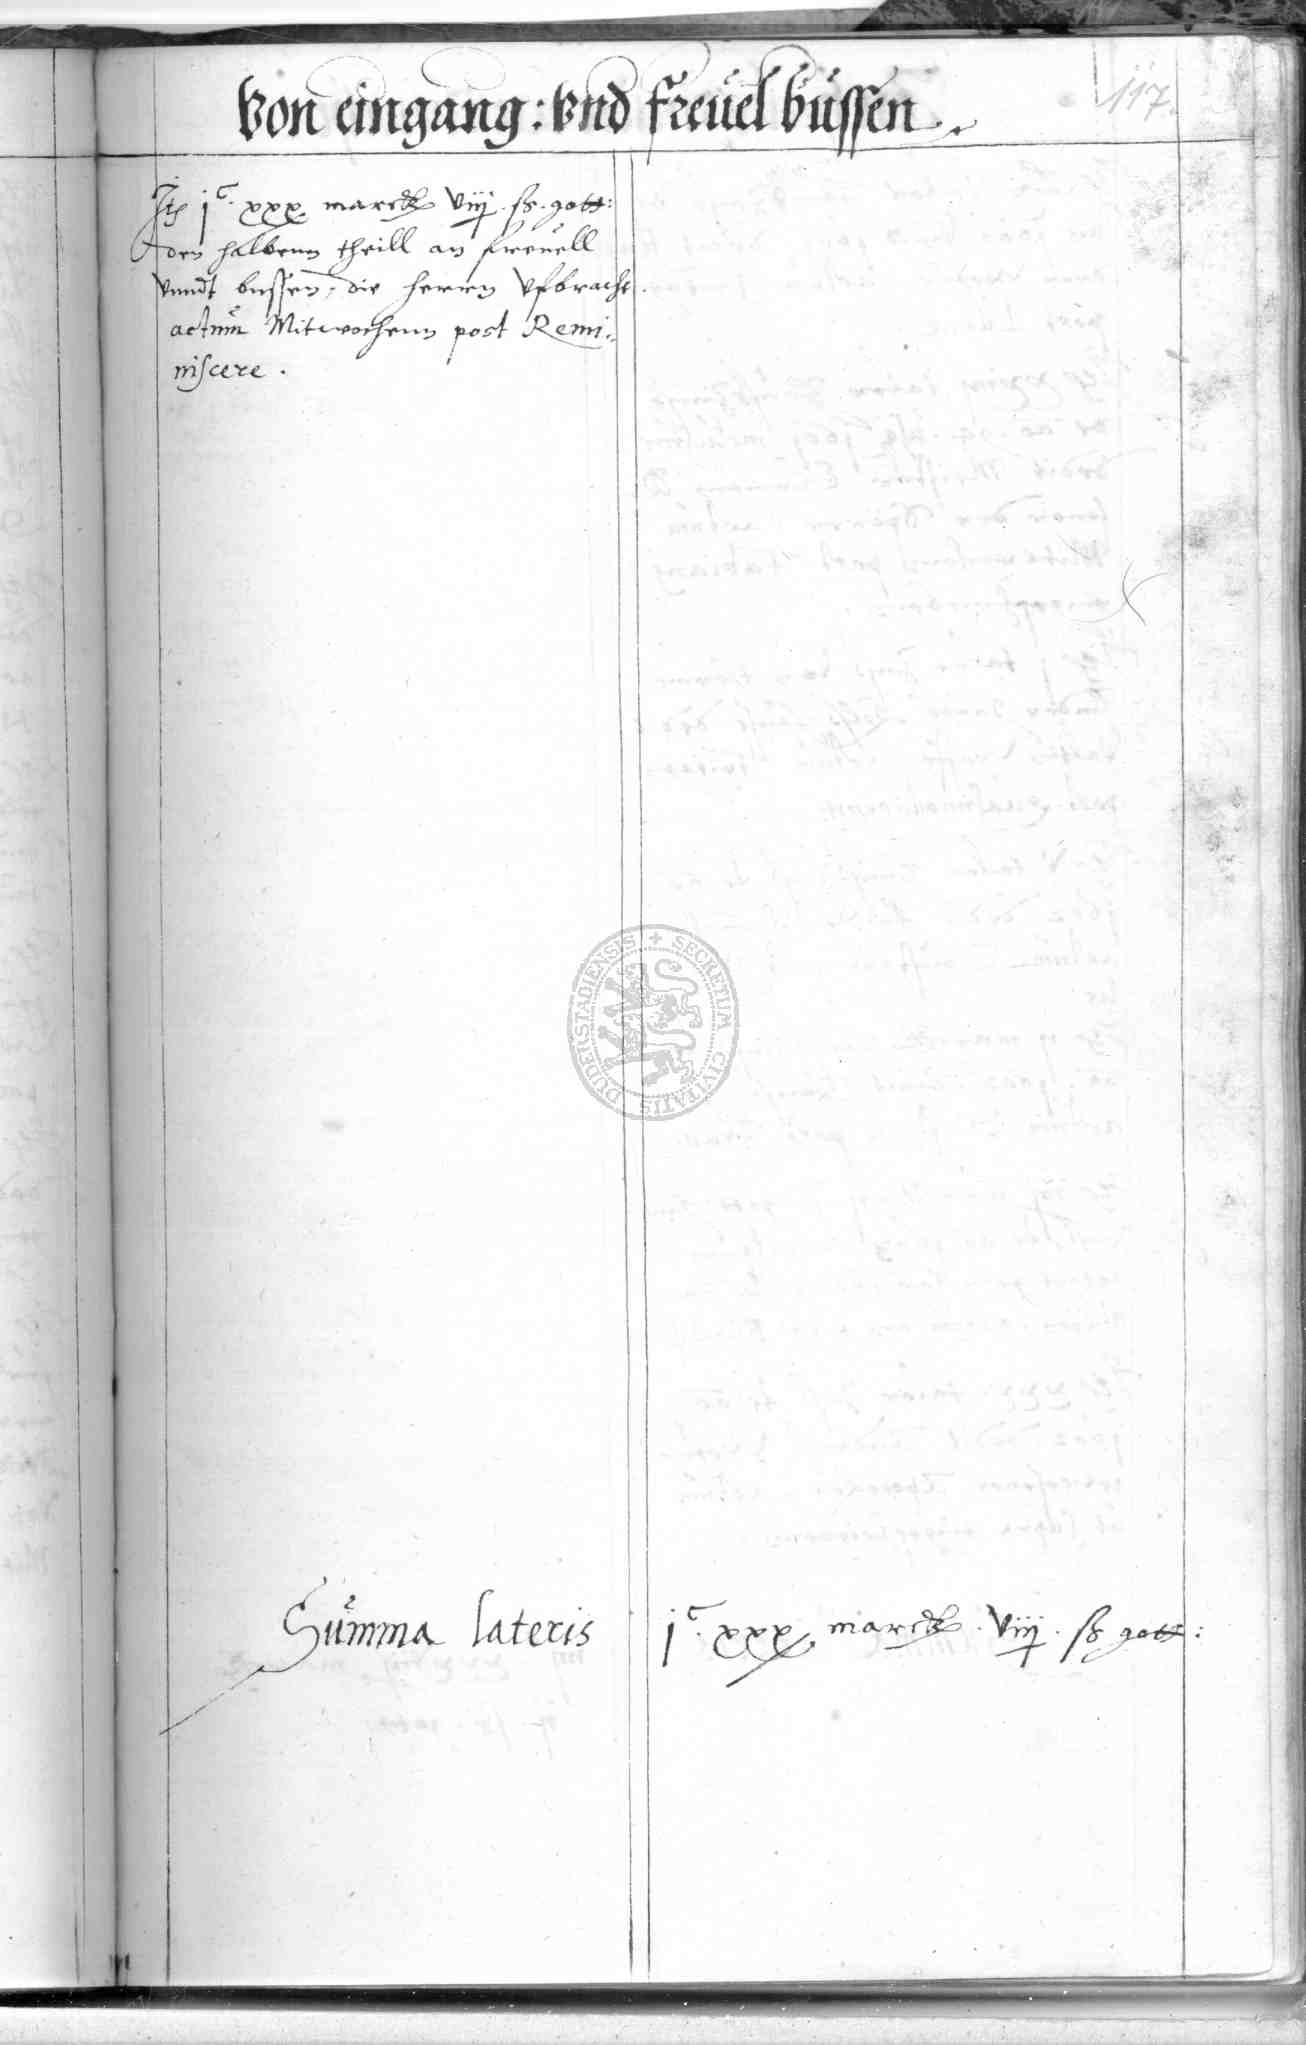 117.
Von eingang: vnd freuel bussen
It j c. xxx marck viij. ß. gott:
den halbenn theill an freuell
vnndt bussen, die herrn vfbracht.
actum Mitwochenn post Remi:
niscere.
Summa lateris j c. xxx marck. viij. ß gott:
DUDERSTADIENSIS + SECRETUM CIVITATIS